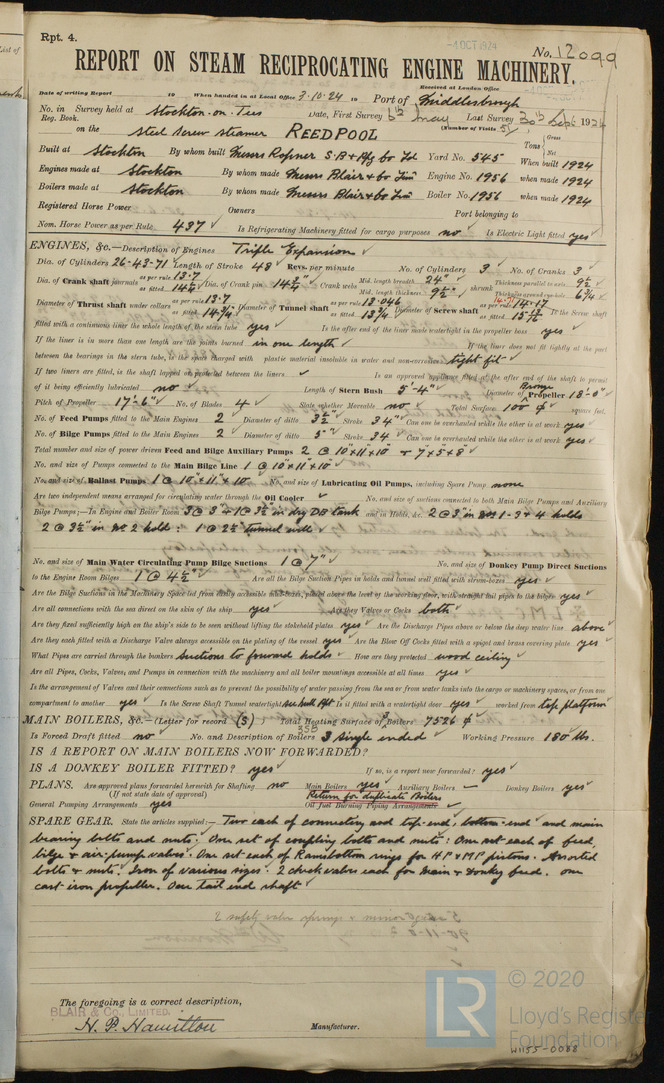 Rpt. 4.
-4 OCT 1924
No. 12099
REPORT ON STEAM RECIPROCATING ENGINE MACHINERY.
Received at London Office
Date of writing Report 19 When handed in at Local Office 3.10.24 19 Port of Middlesbrough
No. in Survey held at Stockton-on-Tees Date, First Survey 6th May Last Survey 30th Sept 1924
Reg. Book. (Number of Visits 51)
on the Steel Screw Steamer REEDPOOL Tons Gross Net
Built at Stockton By whom built Messrs Ropner S.B & Rfg Co Ld Yard No. 545 When built 1924
Engines made at Stockton By whom made Messrs Blair & Co Lim Engine No. 1956 when made 1924
Boilers made at Stockton By whom made Messrs Blair & Co Lim Boiler No. 1956 when made 1924
Registered Horse Power Owners Port belonging to
Nom. Horse Power as per Rule 437 Is Refrigerating Machinery fitted for cargo purposes no Is Electric Light fitted yes
ENGINES, &c.—Description of Engines Triple Expansion
Dia. of Cylinders 26-43-71 Length of Stroke 48 Revs. per minute No. of Cylinders 3 No. of Cranks 3
Dia. of Crank shaft journals as per rule 13.7 as fitted 14¼" Dia. of Crank pin 14¼" Crank webs Mid. length breadth 24" Mid. length thickness 9½" shrunk Thickness parallel to axis 9½ Thickness around eye-hole 6¾"
Diameter of Thrust shaft under collars as per rule 13.7 as fitted 14¼" Diameter of Tunnel shaft as per rule 13.046 as fitted 13¾ Diameter of Screw shaft as per rule 14.17 as fitted 15½" Is the Screw shaft
fitted with a continuous liner the whole length of the stern tube yes Is the after end of the liner made watertight in the propeller boss yes
If the liner is in more than one length are the joints burned in one length If the liner does not fit tightly at the part
between the bearings in the stern tube, is the space charged with plastic material insoluble in water and non-corrosive tight fit
If two liners are fitted, is the shaft lapped or protected between the liners Is an approved appliance fitted at the after end of the shaft to permit
of it being efficiently lubricated no Length of Stern Bush 5'-4" Diameter of Propeller 18'-0"
Bronze
Pitch of Propeller 17'-6" No. of Blades 4 State whether Moveable no Total Surface 100 square feet.
No. of Feed Pumps fitted to the Main Engines 2 Diameter of ditto 3½" Stroke 34" Can one be overhauled while the other is at work yes
No. of Bilge Pumps fitted to the Main Engines 2 Diameter of ditto 5" Stroke 34 Can one be overhauled while the other is at work yes
Total number and size of power driven Feed and Bilge Auxiliary Pumps 2 @ 10"x11"x10 & 7x5x8
No. and size of Pumps connected to the Main Bilge Line 1 @ 10"x11"x10
No. and size of Ballast Pumps 1 @ 10"x11"x10 No. and size of Lubricating Oil Pumps, including Spare Pump none
Are two independent means arranged for circulating water through the Oil Cooler No. and size of suctions connected to both Main Bilge Pumps and Auxiliary
Bilge Pumps;—In Engine and Boiler Room 3 @ 3" & 1 @ 3½ in dry DB tank and in Holds, &c. 2 @ 3" in Nos 1-3 & 4 holds
2 @ 3½" in No 2 hold: 1 @ 2½ tunnel well
No. and size of Main Water Circulating Pump Bilge Suctions 1 @ 7" No. and size of Donkey Pump Direct Suctions
to the Engine Room Bilges 1 @ 4½" Are all the Bilge Suction Pipes in holds and tunnel well fitted with strum-boxes yes
Are the Bilge Suctions in the Machinery Space led from easily accessible mud-boxes, placed above the level of the working floor, with straight tail pipes to the bilges yes
Are all connections with the sea direct on the skin of the ship yes Are they Valves or Cocks both
Are they fixed sufficiently high on the ship's side to be seen without lifting the stokehold plates yes Are the Discharge Pipes above or below the deep water line above
Are they each fitted with a Discharge Valve always accessible on the plating of the vessel yes Are the Blow Off Cocks fitted with a spigot and brass covering plate yes
What Pipes are carried through the bunkers Suctions to forward holds How are they protected wood ceiling
Are all Pipes, Cocks, Valves, and Pumps in connection with the machinery and all boiler mountings accessible at all times yes
Is the arrangement of Valves and their connections such as to prevent the possibility of water passing from the sea or from water tanks into the cargo or machinery spaces, or from one
compartment to another yes Is the Screw Shaft Tunnel watertight see hull rpt Is it fitted with a watertight door yes worked from top platform
MAIN BOILERS, &c.—(Letter for record (S)) Total Heating Surface of Boilers 7526
3SB
Is Forced Draft fitted no No. and Description of Boilers 3 Single ended Working Pressure 180 lbs.
IS A REPORT ON MAIN BOILERS NOW FORWARDED?
IS A DONKEY BOILER FITTED? yes If so, is a report now forwarded? yes
PLANS. Are approved plans forwarded herewith for Shafting no Main Boilers yes Auxiliary Boilers — Donkey Boilers yes
(If not state date of approval) Return for duplicate Boilers
General Pumping Arrangements yes Oil fuel Burning Piping Arrangements
SPARE GEAR. State the articles supplied:— Two each of connecting rod top-end, bottom-end and main
bearing bolts and nuts: One set of coupling bolts and nuts: One set each of feed,
bilge & air-pump valves. One set each of Ramsbottom rings for HP & MP pistons. Assorted
bolts & nuts. Iron of various sizes. 2 check valves each for main & donkey feed. One
cast iron propeller. One tail end shaft
2 safety valve springs &
The foregoing is a correct description,
BLAIR & Co., LIMITED.
H. P. Hamilton Manufacturer.
LR © 2020
Lloyd's Register
Foundation
W1155-0088